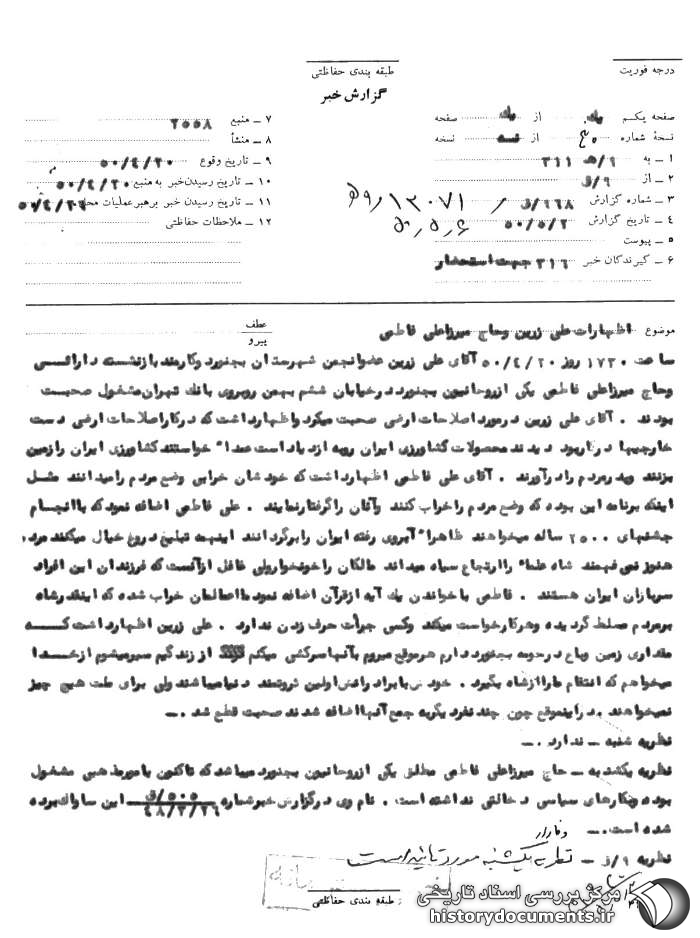 درجه فوریت
طبقه بندی حفاظتی
گزارش خبر
صفحه یکم یك از یك صفحه
نسخهٔ شماره از سه نسخه
۱ ـ به ۹/هـ ۳۱۱
۲ ـ از ۹/ق
۳ ـ شماره گزارش ۹۶۸/ق
۴ ـ تاریخ گزارش ۵۰/۵/۲
۵ ـ پیوست
۶ ـ گیرندگان خبر ۳۱۶ جهت استحضار
۷ ـ منبع ۲۵۵۸
۸ ـ منشأ
۹ ـ تاریخ وقوع ۵۰/۴/۲۰
۱۰ ـ تاریخ رسیدن خبر به منبع ۵۰/۴/۲۰
۱۱ ـ تاریخ رسیدن خبر برهبر عملیات محل ۵۰/۴/۲۶
۱۲ ـ ملاحظات حفاظتی
۱۳۰۷۱
موضوع اظهارات علی زرین وحاج میرزاعلی فاطمی
عطف
پیرو
ساعت ۱۷۳۰ روز ۵۰/۴/۲۰ آقای علی زرین عضوانجمن شهرستان بجنورد وکارمند بازنشسته دارائی
وحاج میرزاعلی فاطمی یکی ازروحانیون بجنورد درخیابان ششم بهمن روبروی بانك تهران مشغول صحبت
بودند . آقای علی زرین درمورد اصلاحات ارضی صحبت میکرد واظهارداشت که درکاراصلاحات ارضی دست
خارجیها درکاربود دیدند محصولات کشاورزی ایران روبه ازدیاد است عمدا" خواستند کشاورزی ایران رازمین
بزنند وپدرمردم رادرآورند . آقای علی فاطمی اظهارداشت که خودشان خرابی وضع مردم رامیدانند مثل
اینکه برنامه این بوده که وضع مردم راخراب کنند وآنان راگرفتارنمایند . علی فاطمی اضافه نمود که باانجام
جشنهای ۲۵۰۰ ساله میخواهند ظاهرا" آبروی رفته ایران رابرگردانند اینهمه تبلیغ دروغ خیال میکنند مردم
هنوز نمی فهمند شاه علما" راارتجاع سیاه میداند مالکان راخونخوارولی غافل ازآنست که فرزندان این افراد
سربازان ایران هستند . فاطمی باخواندن یك آیه ازقرآن اضافه نمود مااعمالمان خراب شده که اینقدرشاه
برمردم مسلط گردیده وهرکارخواست میکند وکسی جرأت حرف زدن ندارد . علی زرین اظهارداشت کـــه
مقداری زمین وباغ درحومه بجنورد دارم هرموقع میروم بآنهاسرکشی میکنم از زندگیم سیرمیشوم ازخـــدا
میخواهم که انتقام ماراازشاه بگیرد . خودش بابرادرانش اولین ثروتمند دنیامیباشند ولی برای ملت هیچ چیز
نمیخواهند . دراینموقع چون چند نفردیگربه جمع آنهااضافه شدند صحبت قطع شد .ـ
نظریه شنبه ـ ندارد .ـ
نظریه یکشنبه ـ حاج میرزاعلی فاطمی مطلق یکی ازروحانیون بجنورد میباشد که تاکنون بامورمذهبی مشغول
بوده وبکارهای سیاسی دخالتی نداشته است . نام وی درگزارش خبرشماره ۵۰۵/ق ۴۸/۳/۲۶ این ساواك بوده
شده است.ـ
نظریه ۹/ق ـ نظریه یکشنبه مورد تائید است
طبقه بندی حفاظتی
مرکز بررسی اسناد تاریخی
historydocuments.ir